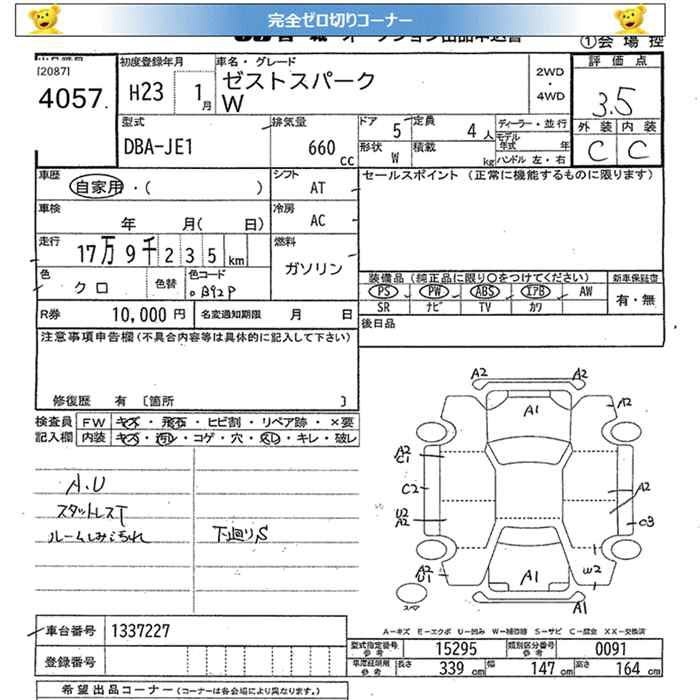 完全ゼロ切りコーナー
①会場控
[2087]
4057.
初度登録年月 H23 1月
車名・グレード
ゼストスパーク
W
2WD
・
4WD
評価点
3.5
外装 内装
C C
型式
DBA-JE1
排気量
660 cc
ドア 5 定員 4人
形状 W 積載 kg
ディーラー・並行
モデル年式 年
ハンドル 左・右
車歴
自家用・( )
シフト AT
セールスポイント (正常に機能するものに限ります)
車検 年 月( 日)
冷房 AC
走行 17万9千235km
燃料 ガソリン
色 クロ 色替 色コード B92P
装備品(純正品に限り○をつけてください) 新車保証書
PS PW ABS エアB AW 有・無
SR ナビ TV カワ
R券 10,000円 名変通知期限 月 日
後日品
注意事項申告欄(不具合内容等は具体的に記入して下さい)
修復歴 有 [箇所 ]
検査員 FW キズ・飛石・ヒビ割・リペア跡・×要
記入欄 内装 キズ・汚レ・コゲ・穴・スレ・キレ・破レ
A.U
スタットレスT
ルームしみ汚れ
下廻りS
A2 A2
A1 A2
A2
C1
C2
U2
A2
A2
C3
A2
U1
W2
A1
スペア
A2
A-キズ E-エクボ U-凹み W-補修跡 S-サビ C-腐食 XX-交換済
車台番号 1337227
登録番号
型式指定番号 参考 15295 類別区分番号 参考 0091
車庫証明用 参考 長さ 339cm 幅 147cm 高さ 164cm
希望出品コーナー(コーナーは各会場により異なります。)